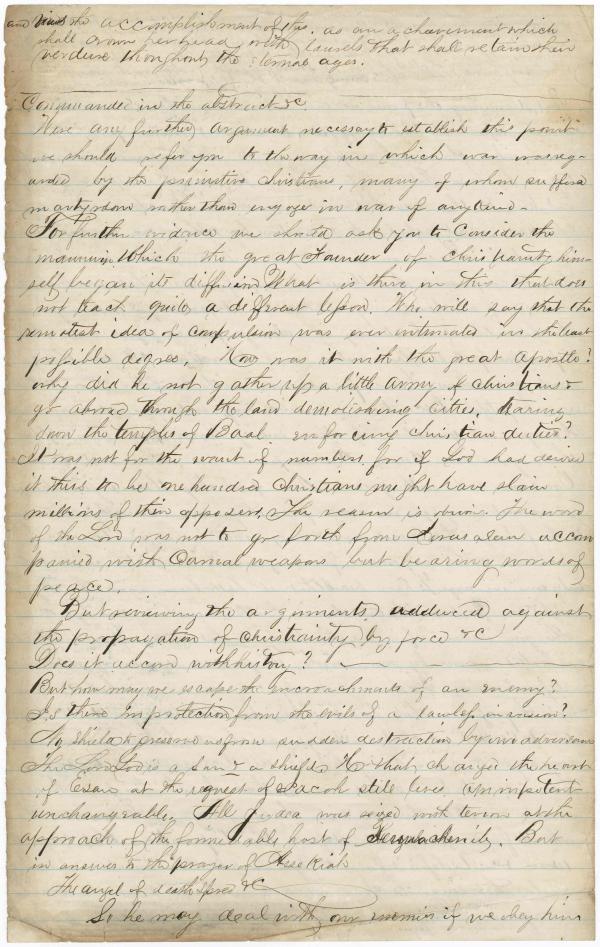 and views the accomplishment of this, as an achievement which
shall crown her head with laurels that shall retain their
verdure throughout the eternal ages.
Commanded in the abstract &c
Were any further argument necessary to establish this point
we should refer you to the way in which war was reg-
arded by the primitive Christians, many of whom suffered
martyrdom rather than engage in war of any kind.
For further evidence we should ask you to consider the
manner in which the great Founder of Christianity him-
self began its diffusion What is there in this that does
not teach quite a different lesson. Who will say that the
remotest idea of compulsion was ever intimated in the least
possible degree. How was it with the great apostle?
why did he not gather up a little army of Christians &
go abroad through the land demolishing cities, tearing
down the temples of Baal enforcing christian duties?
It was not for the want of numbers for if God had desired
it this to be one hundred Christians might have slain
millions of their opposers. The reason is obvious The word
of the Lord was not to go forth from Jerusalem accom
panied with Carnal weapons but bearing words of
peace.
But reviewing the arguments adduced against
the propagation of christianity by force &c
Does it accord with history?
But how may we escape the encroachments of an enemy?
Is there no protection from the evils of a lawless invasion?
No shield to preserve us from sudden destruction by our adversaries
The Lord God is a Sun & a shield He that changed the heart
of Esau at the request of Jacob still lives, omnipotent
unchangeable. All Judea was seized with terror at the
approach of the formidable host of Sennacherib. But
in answer to the prayer of Hezekiah
The angel of death spread &c
So he may deal with our enemies if we obey him